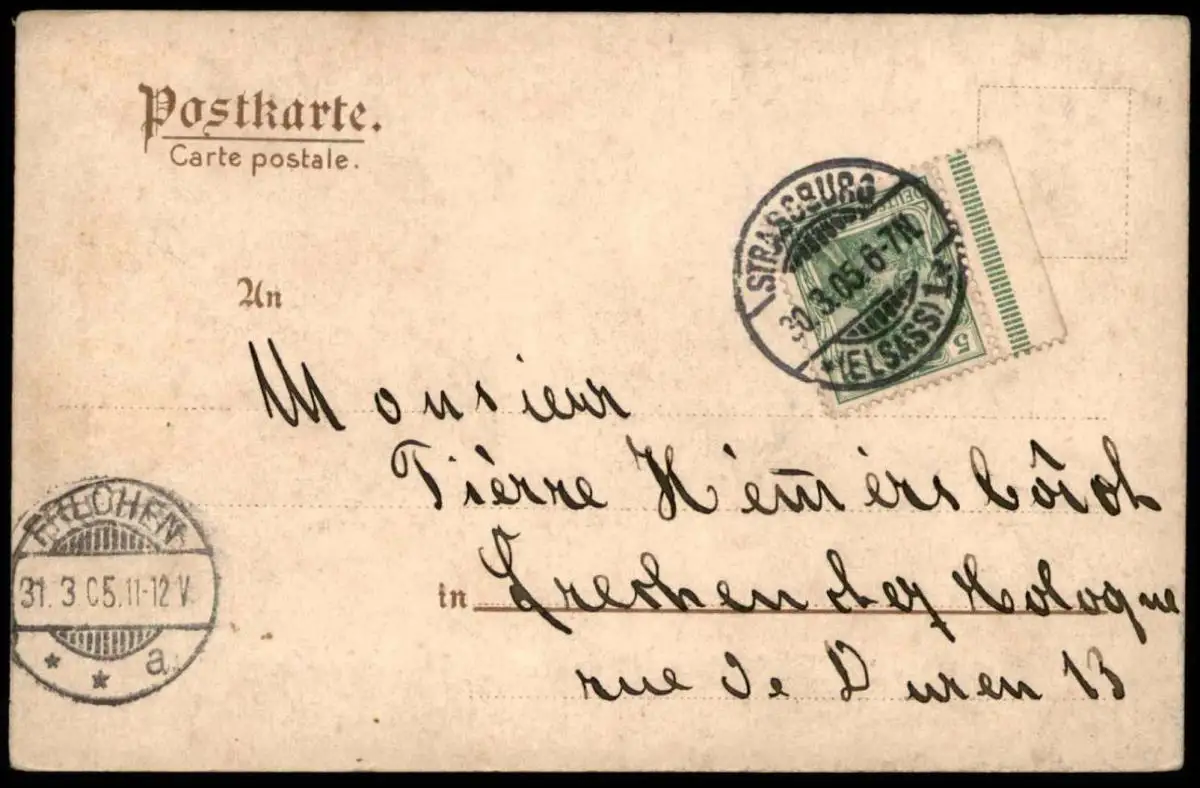 Postkarte.
Carte postale.
STRASSBURG
30.3.05. 6-7N.
*(ELSASS) 1.*
5
An
Monsieur
Pièrre Hem̄ersbach
FRECHEN
31.3 05.11-12 V.
* * a
in Frechen chez Kologne
rue de Duren 13